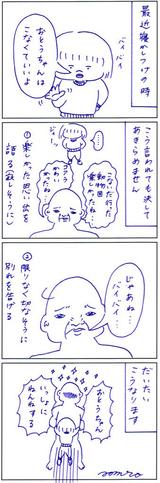 最近寝かしつけの時
バイ
バイ
おとうちゃんは
こなくていいよ
こう言われても決して
あきらめません
こないだ行った
動物園
楽しかったね…
コアラ
かわいかったね
①楽しかった思い出を
語る(寂しそうに)
じゃあね…
バイバイ…
②限りなく切なそうに
別れを告げる
だいたい
こうなります
おとうちゃん
いっしょに
ねんねする